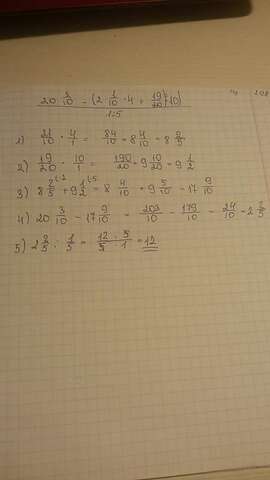 20 3/10 - (2 1/10 · 4 + 19/20 · 10)
1:5
1) 21/10 · 4/1 = 84/10 = 8 4/10 = 8 2/5
2) 19/20 · 10/1 = 190/20 = 9 10/20 = 9 1/2
3) 8 2/5 + 9 1/2 = 8 4/10 + 9 5/10 = 17 9/10
4) 20 3/10 - 17 9/10 = 203/10 - 179/10 = 24/10 = 2 2/5
5) 2 2/5 : 1/5 = 12 · 5/5 · 1 = 12